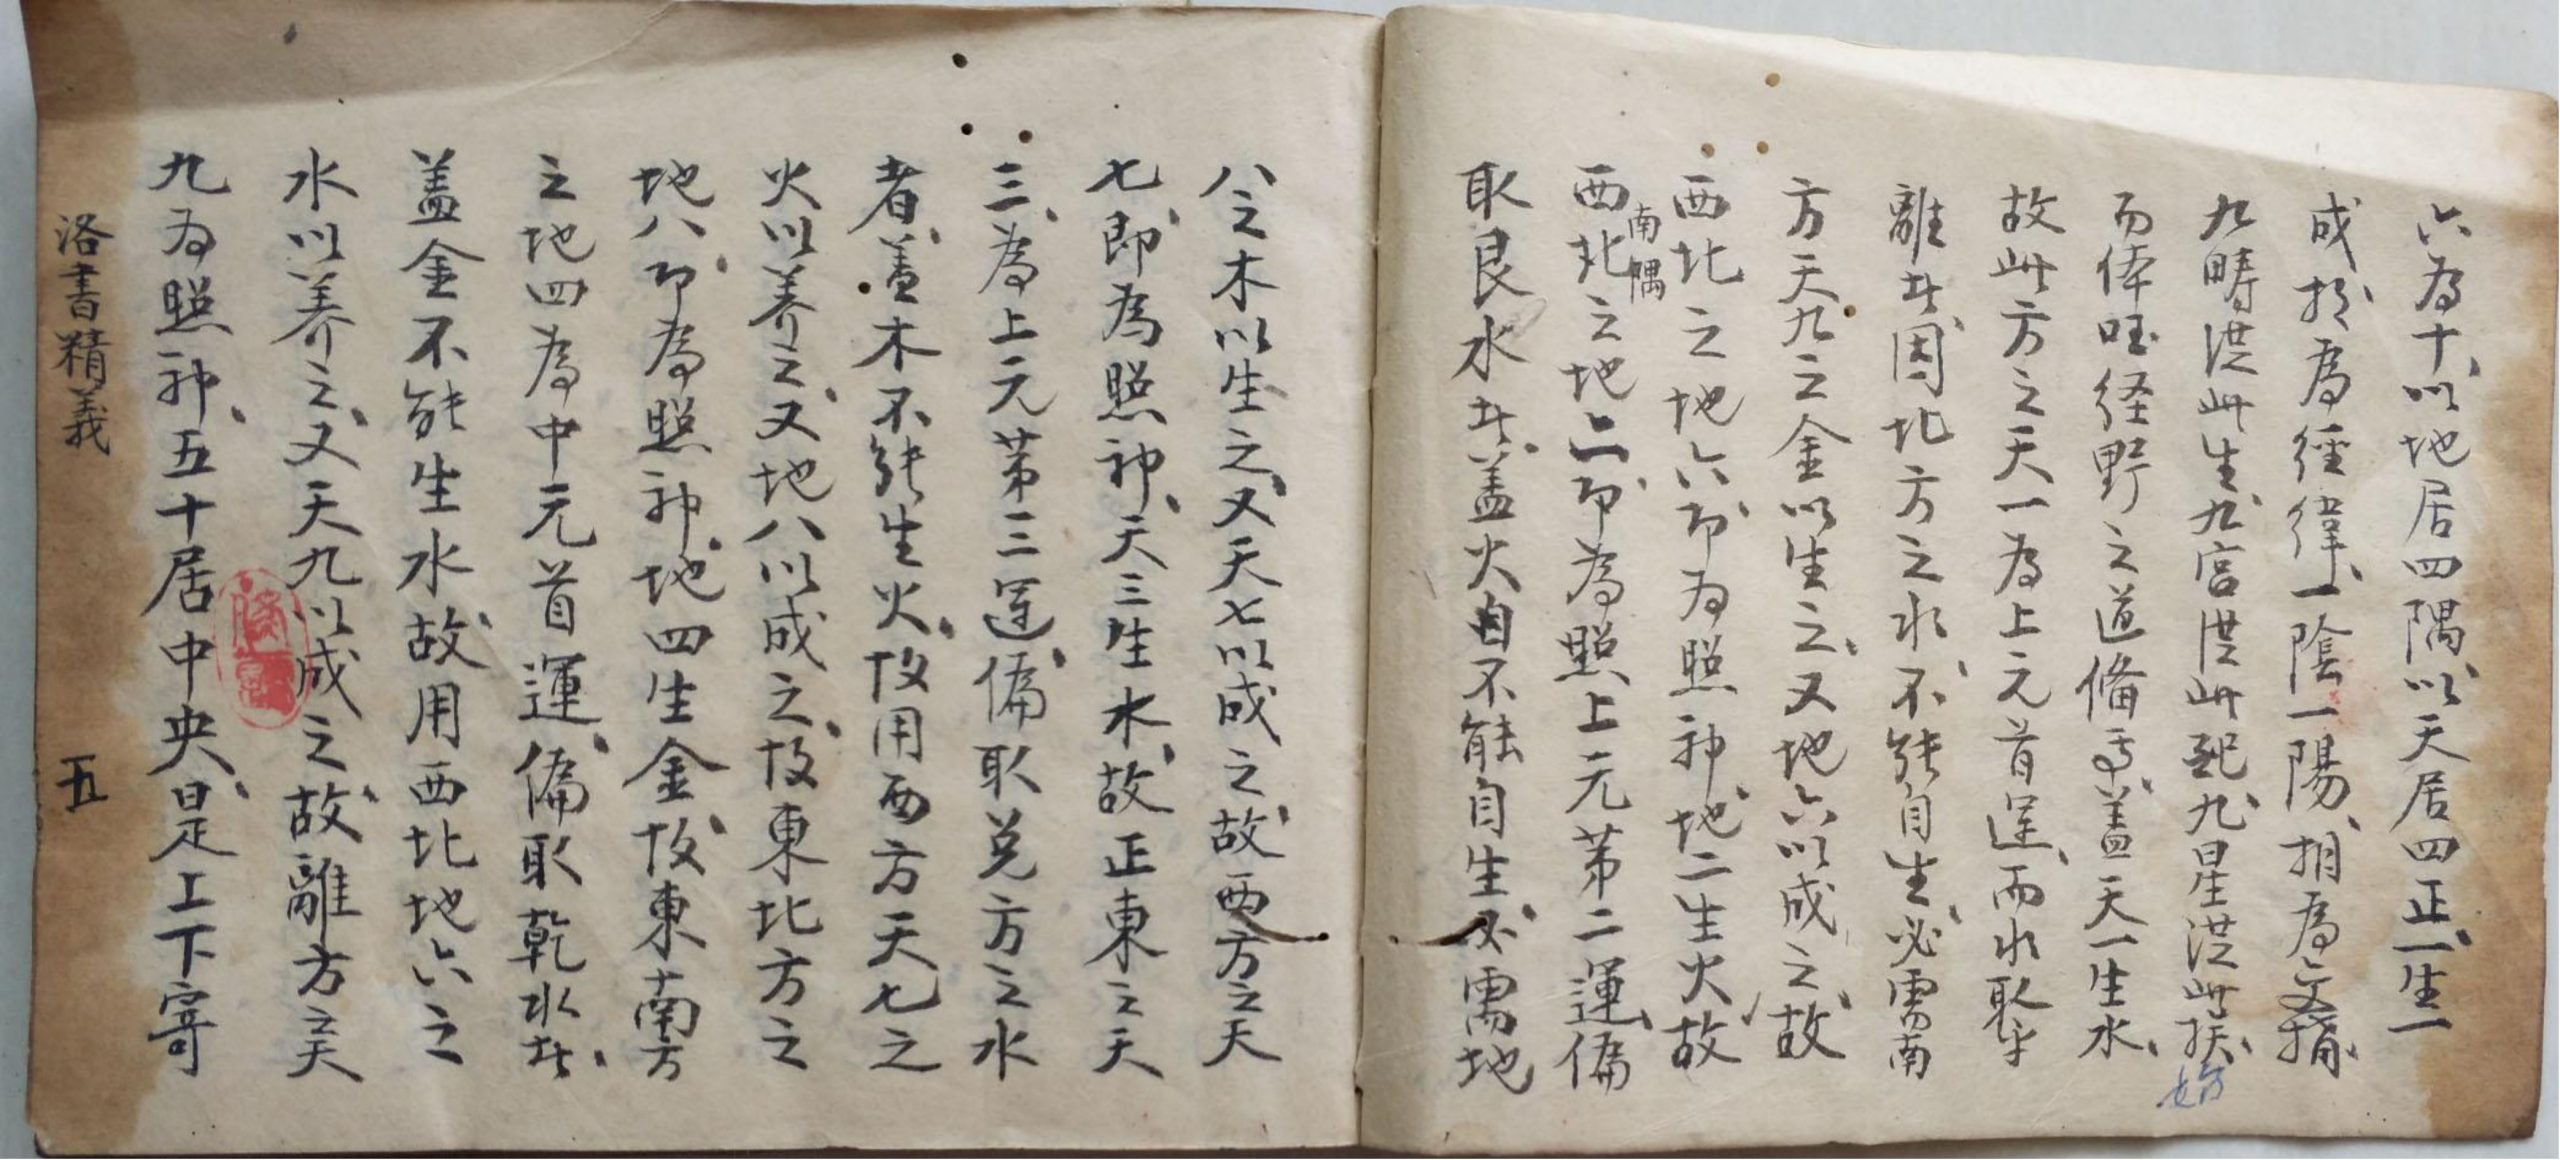 六為十、以地居四隅、以天居四正、一生一
成、於為經緯、一陰一陽、相為交搆、
九疇從此生、九宮從此起、九星從此挨、
始
而体呸経野之道備焉、蓋天一生水、
故此方之天一為上元首運、而水取乎
離者、因北方之水、不能自生、必需南
方天九之金以生之、又地六以成之、故
西北之地六、即為照神、地二生火、故
南隅
西北之地二、即為照上元第二運、偏
取艮水者、蓋火自不能自生、必需地
八之木以生之、又天七以成之、故西方之天
七、即為照神、天三生木、故正東之天
三、為上元第三運、偏取兌方之水
者、蓋木不能生火、故用西方天七之
火以養之、又地八以成之、故東北方之
地八、即為照神、地四生金、故東南方
之地四為中元首運、偏取乾水者、
蓋金不能生水、故用西北地六之
水以養之、又天九以成之、故離方之天
九為照神、五十居中央、是上下寄
洛書精義
五